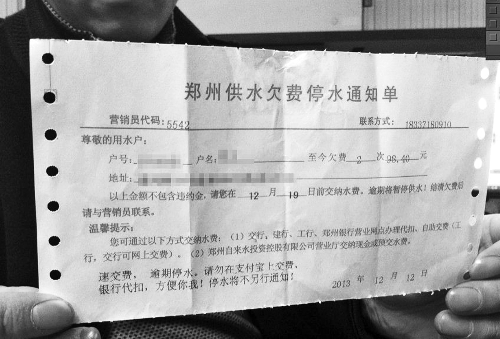 郑州供水欠费停水通知单
营销员代码：5542 联系方式：18337180910
尊敬的用水户：
户号： 户名： 至今欠费 2 次 98.40 元
地址：
以上金额不包含违约金，请您在 12 月 19 日前交纳水费。逾期将暂停供水！结清欠费后
请与营销员联系。
温馨提示：
您可通过以下方式交纳水费：（1）交行、建行、工行、郑州银行营业网点办理代扣、自助交费（工
行，交行可网上交费）。（2）郑州自来水投资控股有限公司营业厅交纳现金或预交水费。
速交费， 逾期停水。请勿在支付宝上交费、
银行代扣，方便你我！停水将不另行通知！ 2013 年 12 月 12 日